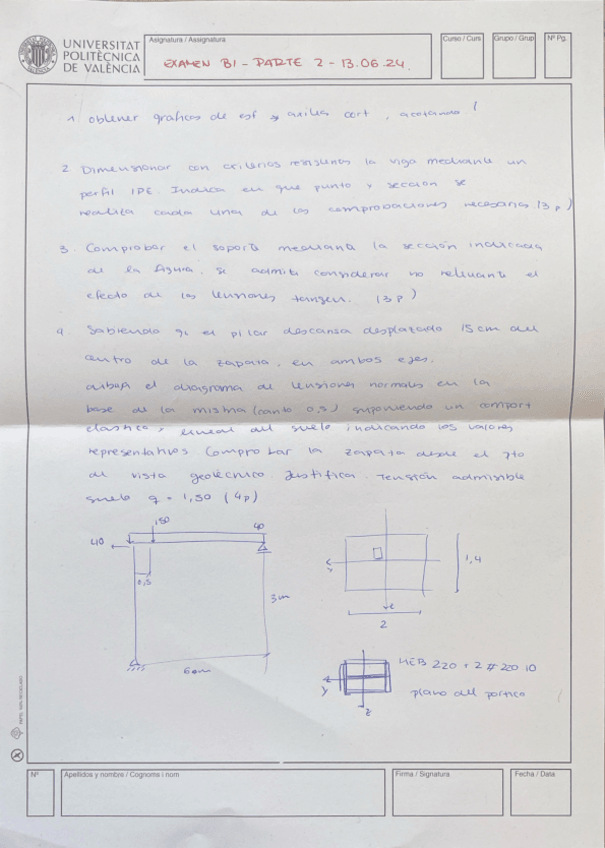 UNIVERSITAT
POLITÈCNICA
DE VALÈNCIA
Asignatura / Assignatura
EXAMEN B1 - PARTE 2 - 13.06.24
Curso / Curs
Grupo / Grup
Nº Pg.
1 Obtener gráficos de esf y axiles cort, acotando (
2 Dimensionar con criterios resistentes la viga mediante un
perfil IPE. Indica en que punto y sección se
realiza cada una de las comprobaciones necesarias (3 p)
3. Comprobar el soporte mediante la sección indicada
de la figura. Se admite considerar no relevante el
efecto de las tensiones tangen. (3 p)
4 Sabiendo q el pilar descansa desplazado 15 cm del
centro de la zapata, en ambos ejes.
dibuja el diagrama de tensiones normales en la
base de la misma (canto 0,5) suponiendo un comport
elástico y lineal del suelo indicando los valores
representativos. Comprobar la zapata desde el pto
de vista geotécnico. Justifica. Tensión admisible
suelo q = 1,50 (4p)
150
40
40
0,5
3m
6m
y
z
1,4
2
HEB 220 + 2 # 220 10
plano del pórtico
y
z
Nº
Apellidos y nombre / Cognoms i nom
Firma / Signatura
Fecha / Data